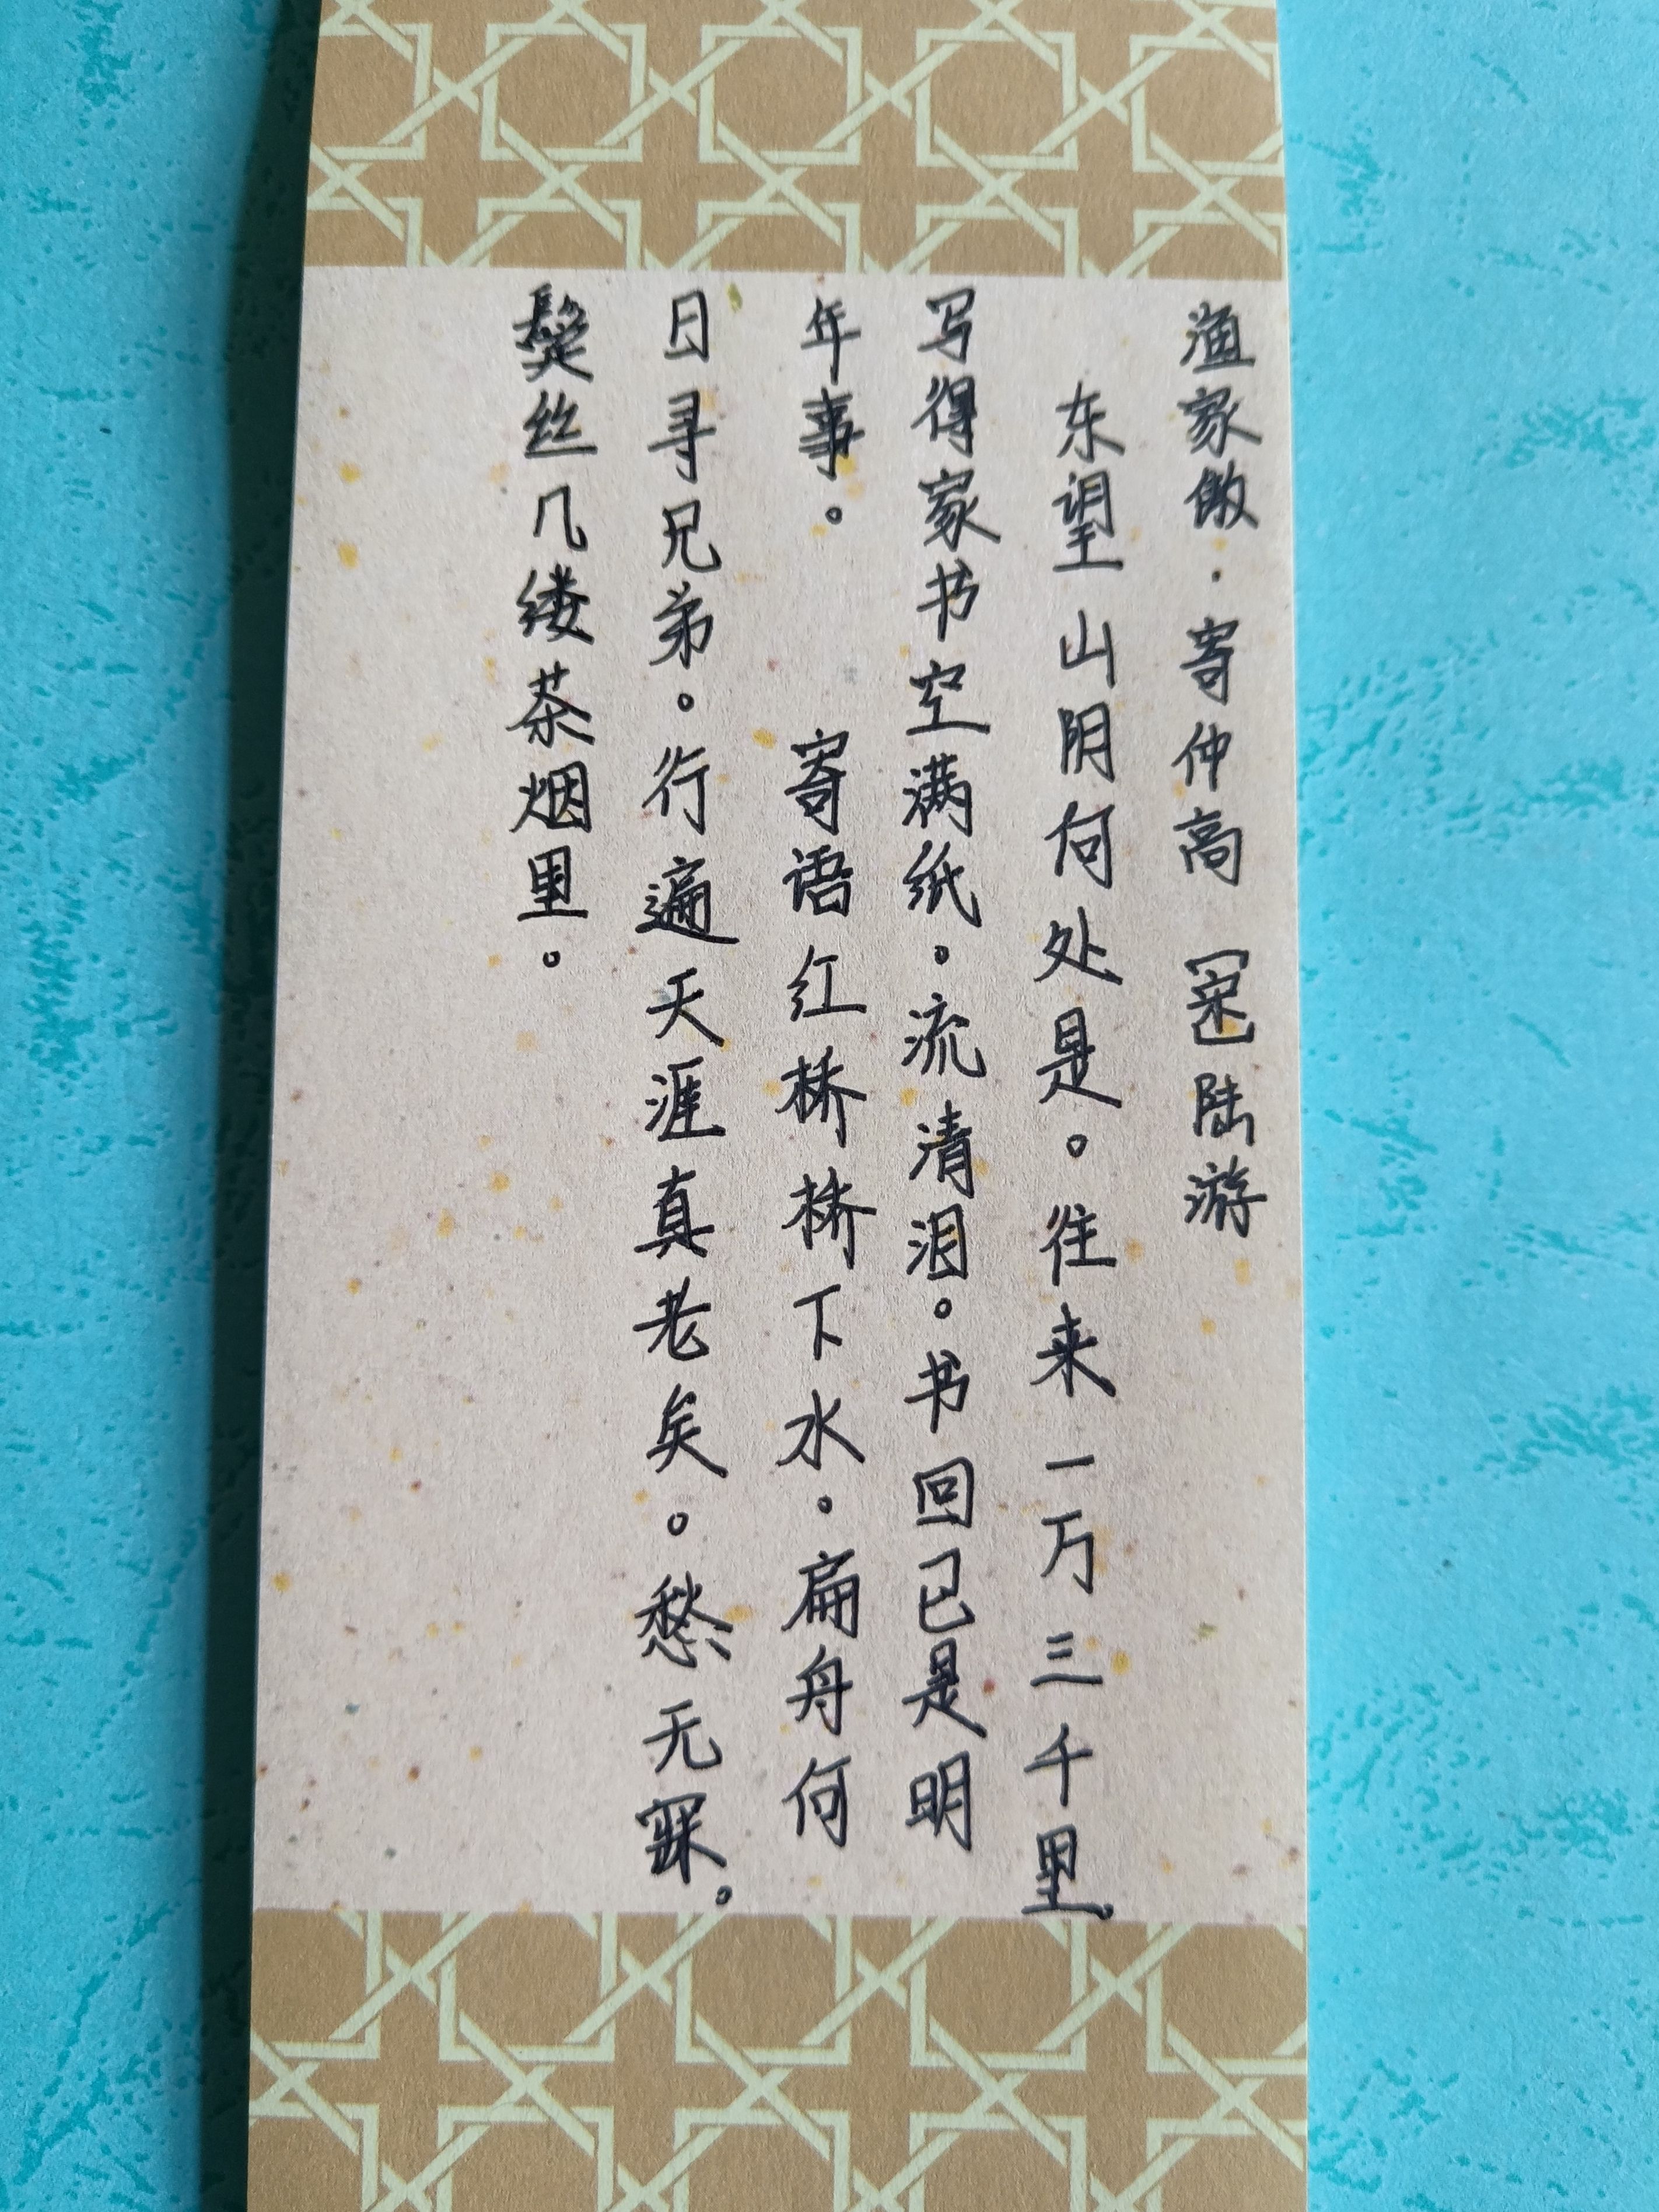 渔家傲·寄仲高 [宋] 陆游
东望山阴何处是。往来一万三千里。
写得家书空满纸。流清泪。书回已是明
年事。 寄语红桥桥下水。扁舟何
日寻兄弟。行遍天涯真老矣。愁无寐。
鬓丝几缕茶烟里。